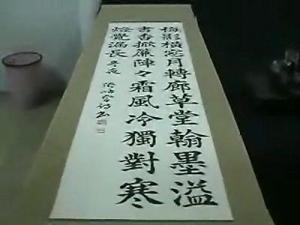 梅影橫窗月轉廊草堂翰墨溢
書香掀簾陣々霜風冷獨對寒
燈覺漏長 冬夜